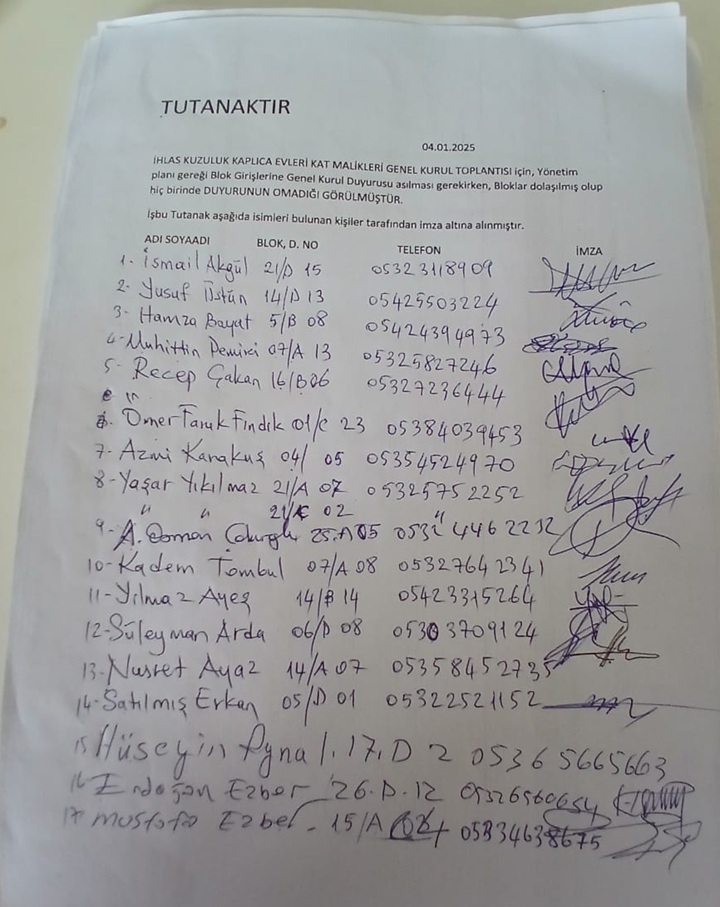 TUTANAKTIR
04.01.2025
İHLAS KUZULUK KAPLICA EVLERİ KAT MALİKLERİ GENEL KURUL TOPLANTISI için, Yönetim
planı gereği Blok Girişlerine Genel Kurul Duyurusu asılması gerekirken, Bloklar dolaşılmış olup
hiç birinde DUYURUNUN OMADIĞI GÖRÜLMÜŞTÜR.
İşbu Tutanak aşağıda isimleri bulunan kişiler tarafından imza altına alınmıştır.
ADI SOYAADI BLOK, D. NO TELEFON İMZA
1- İsmail Akgül 21/D 15 05323118909
2- Yusuf Üstün 14/D 13 05425503224
3- Hamza Bayat 5/B 08 05424394973
4- Muhittin 07/A 13 05325827246
5- Recep Çakan 16/B06 05327236444
6. Ömer Faruk Fındık 01/C 23 05384039453
7- Azmi Karakuş 04/ 05 05354524970
8- Yaşar Yıkılmaz 21/A 07 05325752252
" " 21/C 02 "
9- A. Osman 25.A 05 0532 4462232
10- Kadem Tombul 07/A 08 05327642341
11- Yılmaz Ayeş 14/B 14 05423315264
12- Süleyman Arda 06/D 08 05303709124
13- Nusret Ayaz 14/A 07 05358452735
14- Satılmış Erkan 05/D 01 05322521152
15 Hüseyin Aynal. 17. D 2 05365665663
16 Erdoğan Ezber 26. D. 12 05326560654
17 mustafa Ezber - 15/A 05334638675